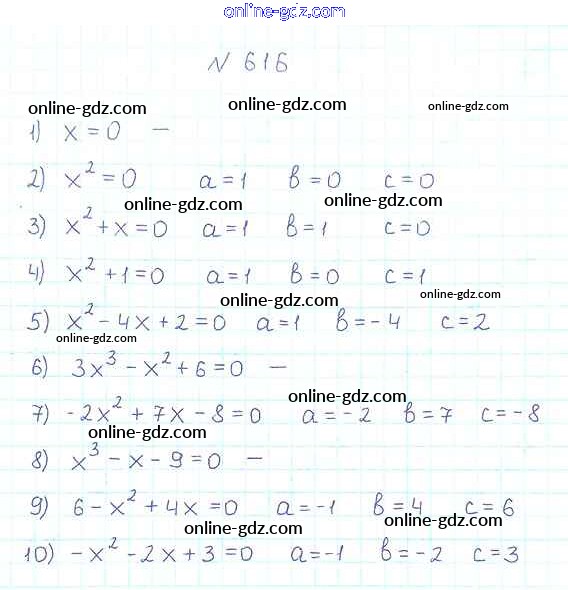 online-gdz.com
N 616
online-gdz.com online-gdz.com online-gdz.com
1) x = 0 —
2) x² = 0 a = 1 b = 0 c = 0
online-gdz.com online-gdz.com
3) x² + x = 0 a = 1 b = 1 c = 0
4) x² + 1 = 0 a = 1 b = 0 c = 1
online-gdz.com online-gdz.com
5) x² - 4x + 2 = 0 a = 1 b = - 4 c = 2
online-gdz.com
6) 3x³ - x² + 6 = 0 —
online-gdz.com
7) - 2x² + 7x - 8 = 0 a = - 2 b = 7 c = - 8
online-gdz.com
8) x³ - x - 9 = 0 —
9) 6 - x² + 4x = 0 a = -1 b = 4 c = 6
online-gdz.com online-gdz.com
10) - x² - 2x + 3 = 0 a = -1 b = - 2 c = 3